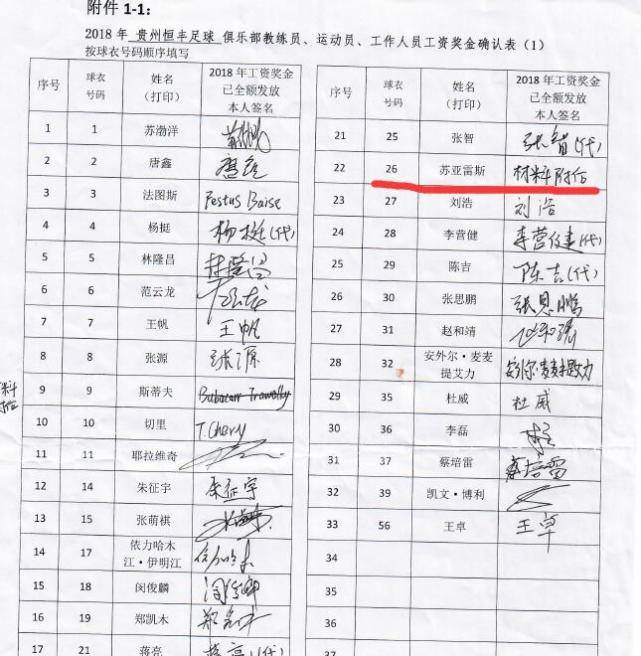 附件 1-1：
2018 年 贵州恒丰足球 俱乐部教练员、运动员、工作人员工资奖金确认表（1）
按球衣号码顺序填写
序号 球衣号码 姓名（打印） 2018 年工资奖金已全额发放本人签名
1 1 苏渤洋
2 2 唐鑫 唐鑫
3 3 法图斯 Festus Baise
4 4 杨挺 杨挺(代)
5 5 林隆昌 林隆昌
6 6 范云龙 范云龙
7 7 王帆 王帆
8 8 张源 张源
9 9 斯蒂夫
10 10 切里 T.Chery
11 11 耶拉维奇
12 14 朱征宇 朱征宇
13 15 张萌棋
14 17 依力哈木江·伊明江
15 18 闵俊麟 闵俊麟
16 19 郑凯木 郑凯木
17 21 蒋亮 蒋亮(代)
序号 球衣号码 姓名（打印） 2018 年工资奖金已全额发放本人签名
21 25 张智 张智(代)
22 26 苏亚雷斯 材料附后
23 27 刘浩 刘浩
24 28 李营健 李营健(代)
25 29 陈吉 陈吉(代)
26 30 张思鹏 张思鹏
27 31 赵和靖
28 32 安外尔·麦麦提艾力
29 35 杜威 杜威
30 36 李磊
31 37 蔡培雷 蔡培雷
32 39 凯文·博利
33 56 王卓 王卓
34
35
36
37